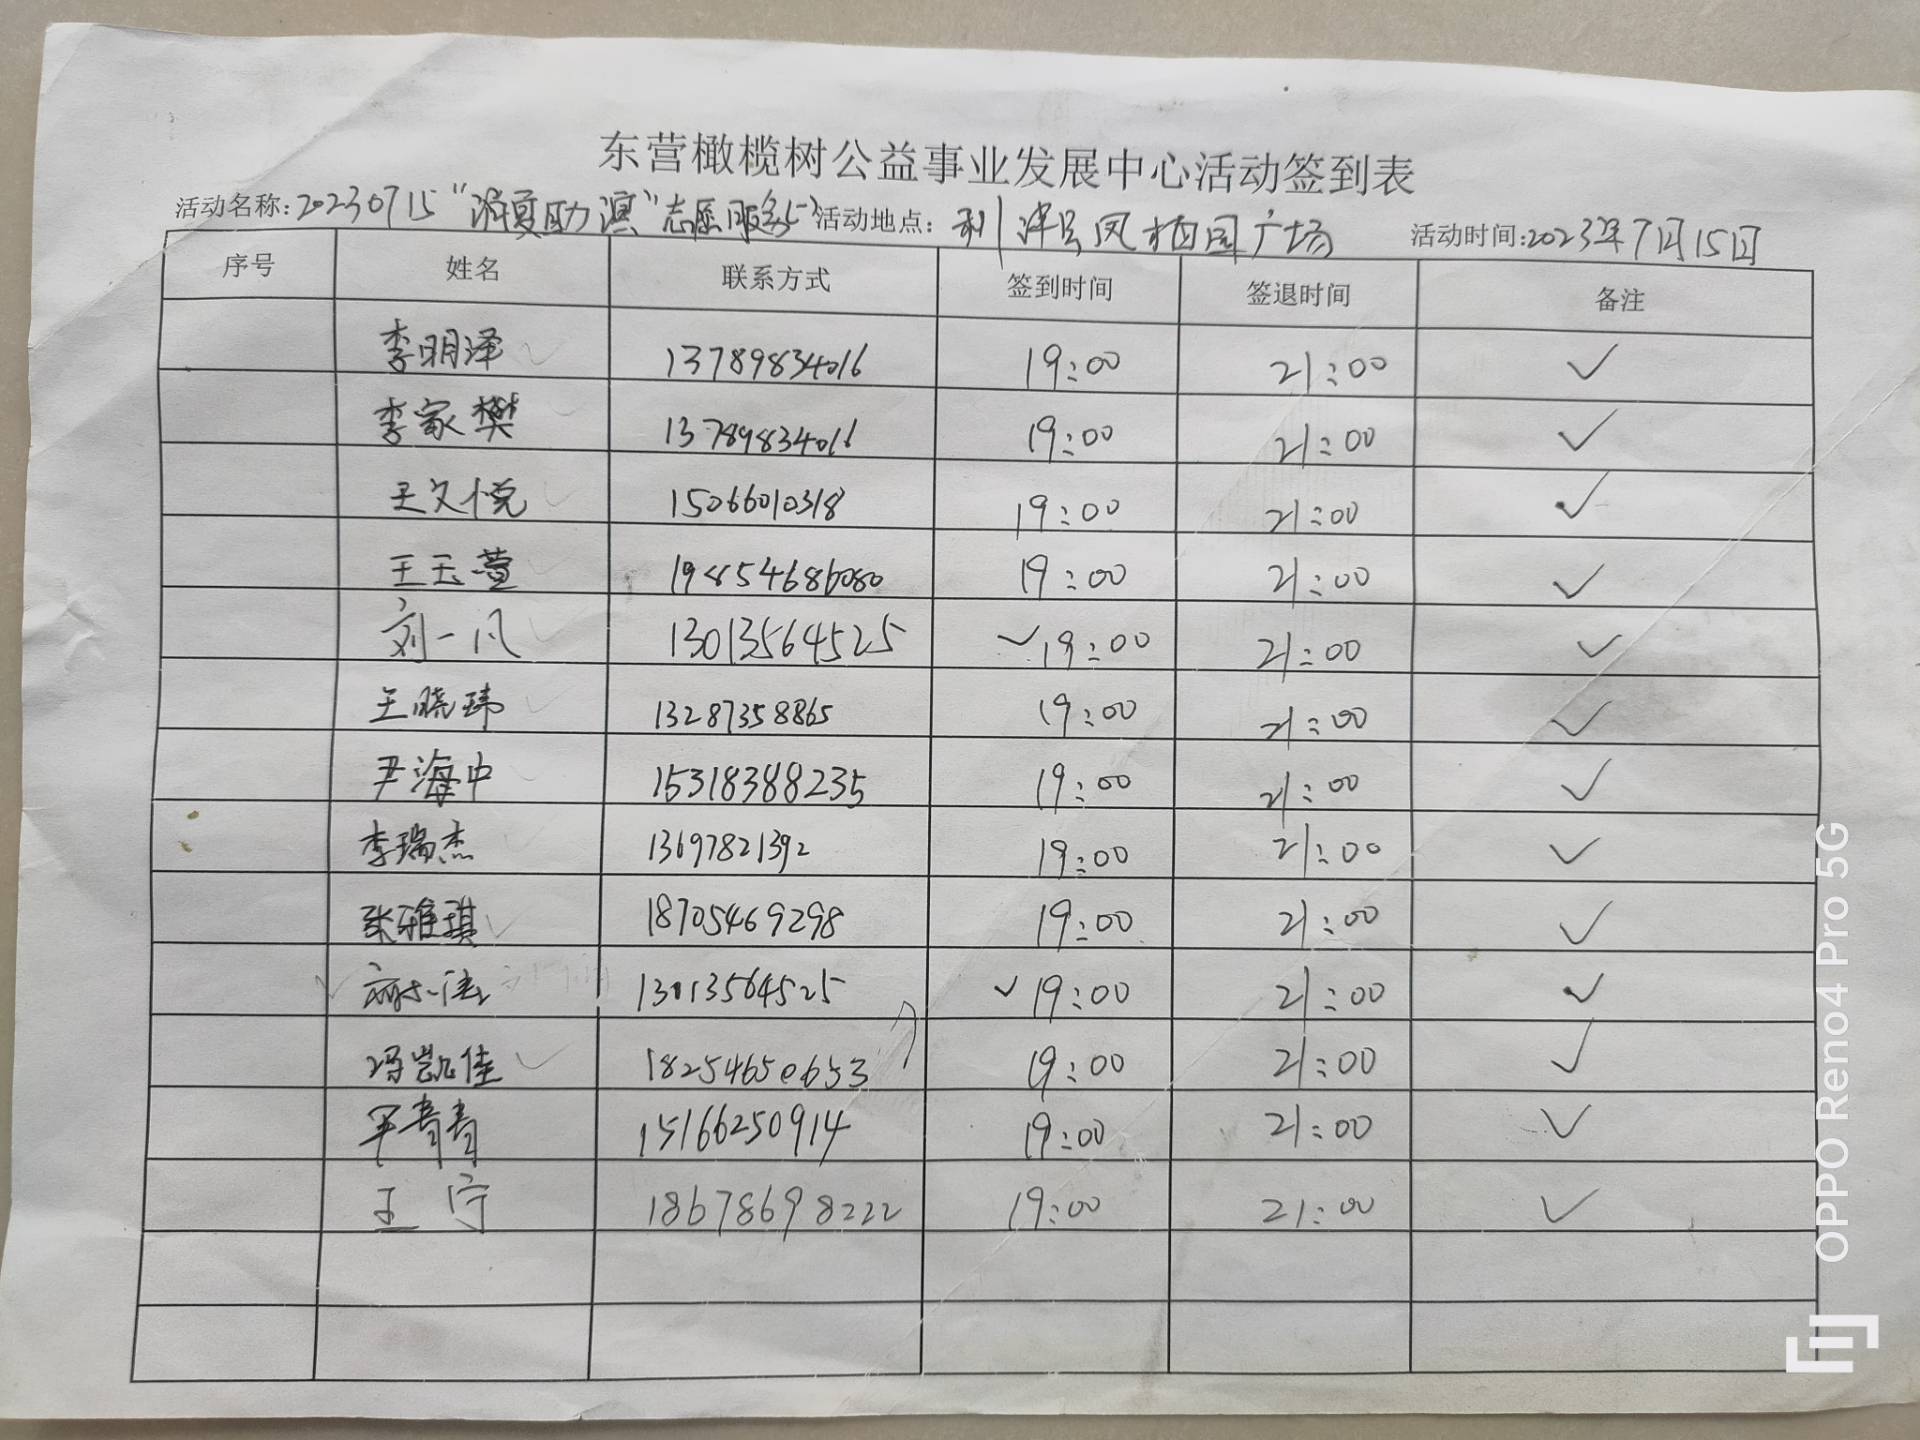 东营橄榄树公益事业发展中心活动签到表
活动名称:20230715"消夏助演"志愿服务 活动地点: 利津县凤栖园广场 活动时间:2023年7月15日
序号 姓名 联系方式 签到时间 签退时间 备注
李明泽 ✓ 13789834016 19:00 21:00 ✓
李家樊 ✓ 13789834016 19:00 21:00 ✓
王文悦 ✓ 15066010318 19:00 21:00 ✓
王玉萱 ✓ 19854686080 19:00 21:00 ✓
刘一凡 ✓ 13013564525 ✓ 19:00 21:00 ✓
王晓玮 ✓ 13287358865 19:00 21:00 ✓
尹海中 ✓ 15318388235 19:00 21:00 ✓
李瑞杰 13697821392 19:00 21:00 ✓
张雅琪 ✓ 18705469298 19:00 21:00 ✓
✓ 13013564525 ✓ 19:00 21:00 ✓
冯凯佳 ✓ 18254650653 19:00 21:00 ✓
青青 15166250914 19:00 21:00 ✓
王宁 18678698222 19:00 21:00 ✓
OPPO Reno4 Pro 5G